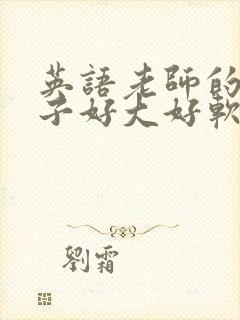 英語老師的
子好大好軟
劉霜